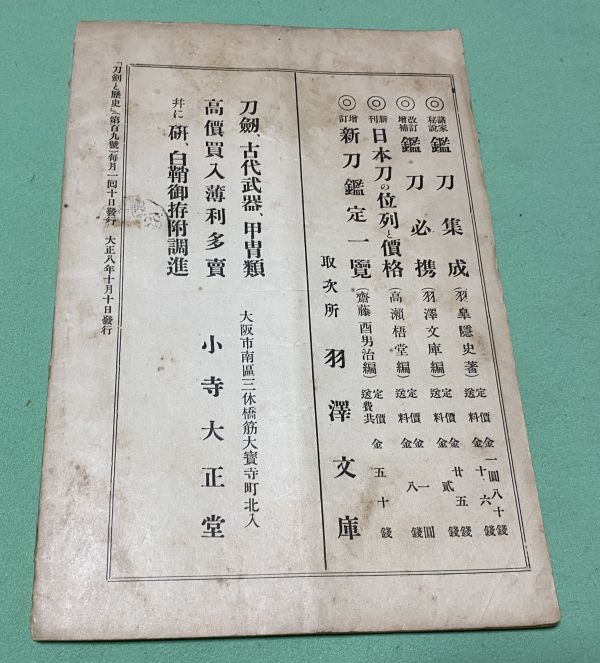 ◎諸家秘說鑑刀集成(羽皐隱史著)定價金一圓八十錢 送料金十六錢
◎改訂增補鑑刀必携(羽澤文庫編)定價金廿五錢 送料金貳錢
◎新刊日本刀の位列と價格(高瀨梧堂編)定價金一圓 送料金八錢
◎增訂新刀鑑定一覽(齋藤酉男治編)定價金五十錢 送費共
取次所 羽澤文庫
刀劒、古代武器、甲冑類
高價買入薄利多賣
幷に研、白鞘御拵附調進
大阪市南區三休橋筋大寳寺町北入
小寺大正堂
「刀劍と歷史」(第百九號)每月一回十日發行 大正八年十月十日發行